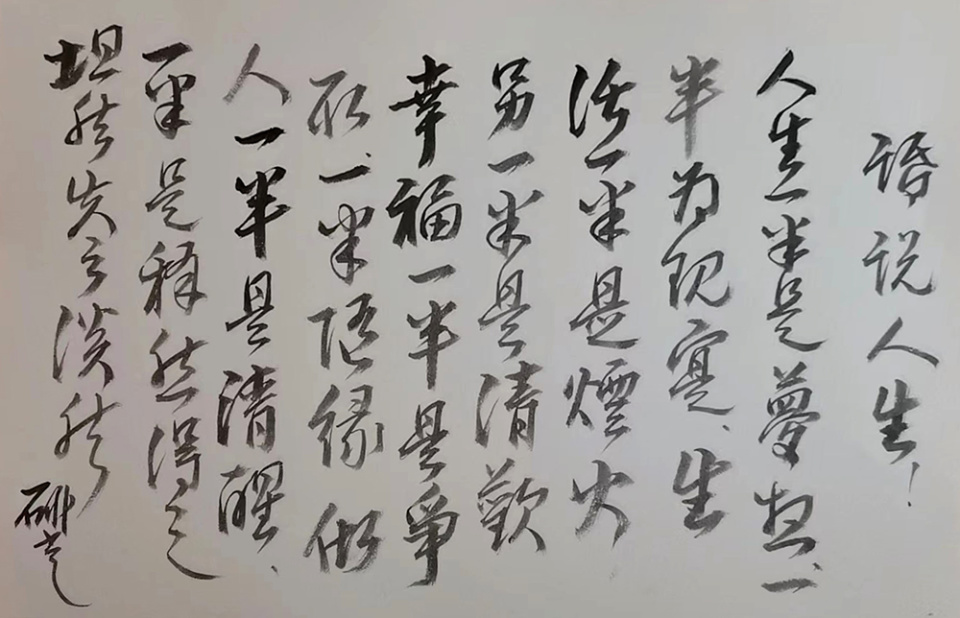 话说人生！
人生一半是夢想、一
半为现寔、生
活一半是煙火
另一半是清歡
幸福一半是爭
取、一半随缘做
人一半是清醒、
一半是释然得之
坦然失之淡然